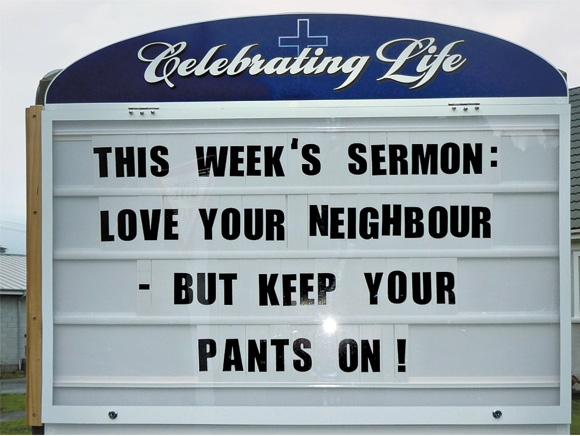 Celebrating Life
THIS WEEK'S SERMON:
LOVE YOUR NEIGHBOUR
- BUT KEEP YOUR
PANTS ON!